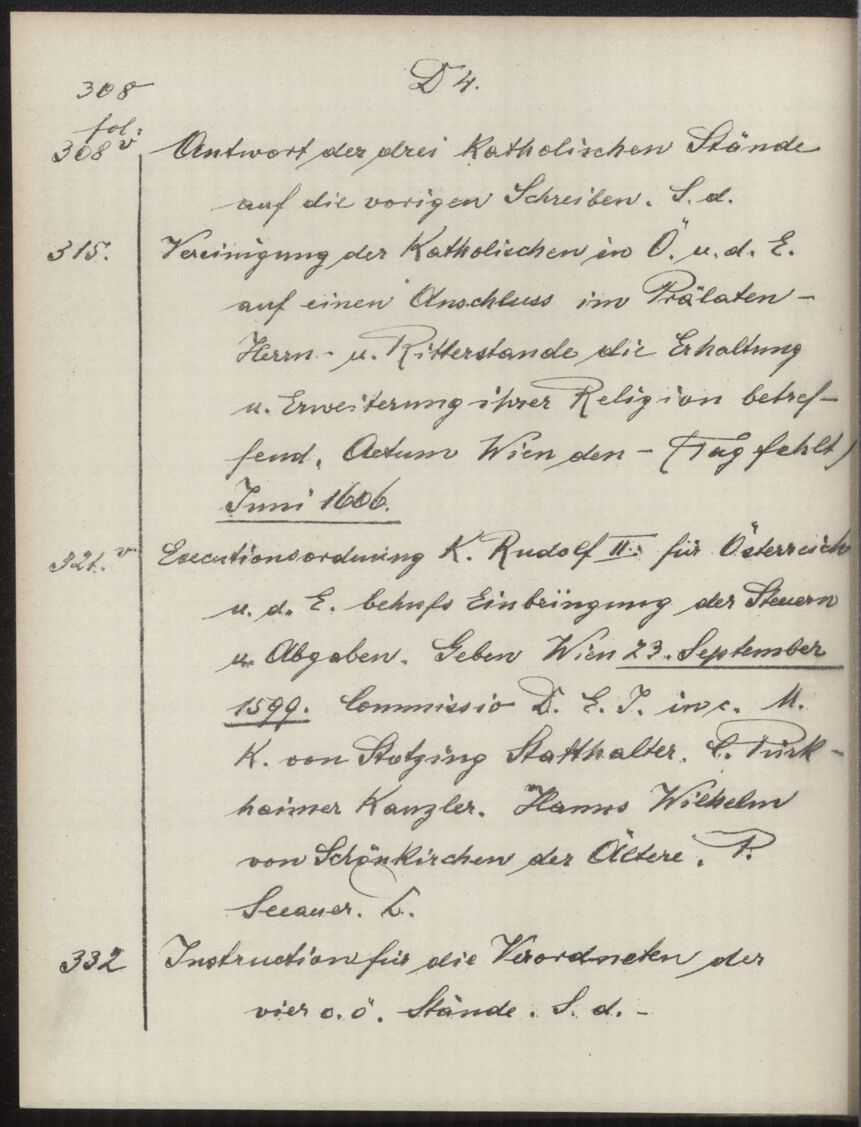 308
D 4.
fol:
308v Antwort der drei Katholischen Stände
auf die vorigen Schreiben. S. d.
315. Vereinigung der Katholischen in Ö. u. d. E.
auf einen Anschluss im Prälaten-
Herrn- u. Ritterstande die Erhaltung
u. Erweiterung ihrer Religion betref-
fend. Actum Wien den - (Tag fehlt)
Juni 1606.
321.v Executionsordnung K. Rudolf II. für Österreich
u. d. E. behufs Einbringung der Steuern
u. Abgaben. Geben Wien 23. September
1599. Commissio D. E. I. in c. M.
K. von Stotzing Statthalter. C. Pirk-
haimer Kanzler. Hanns Wilhelm
von Schönkirchen der Ältere. P.
Seeauer. L.
332 Instruction für die Verordneten der
vier o. ö. Stände. S. d. -